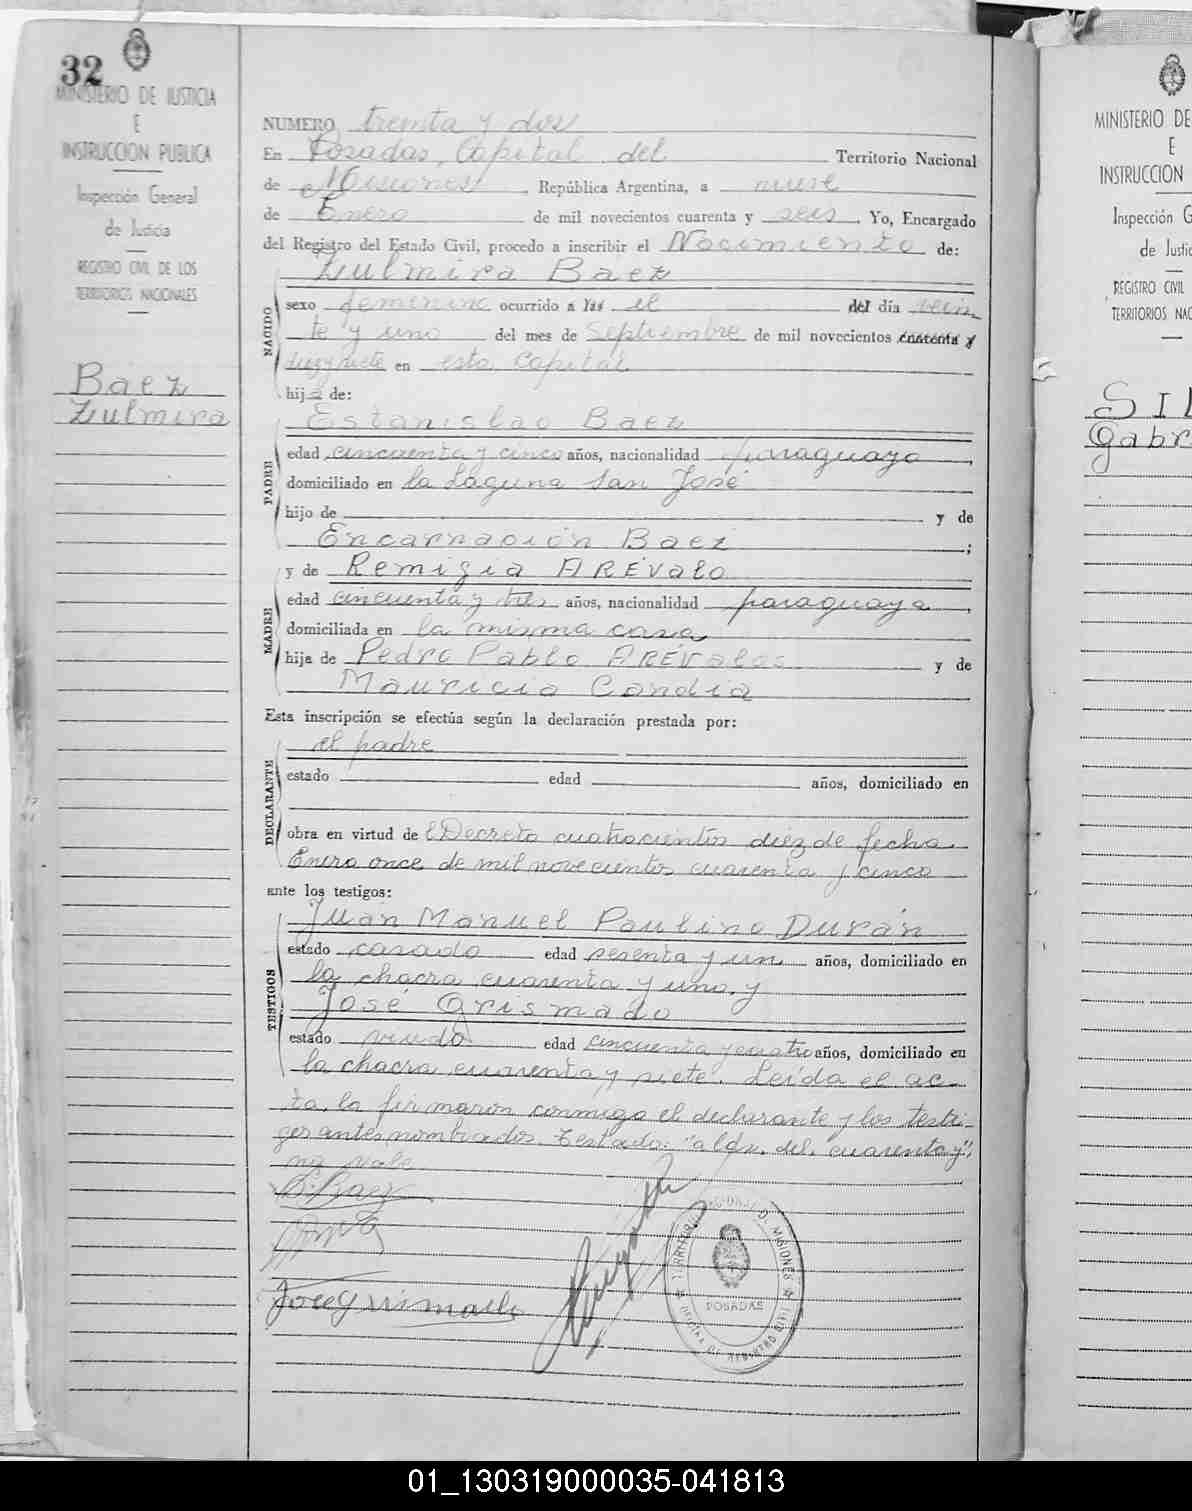 32
MINISTERIO DE JUSTICIA
E
INSTRUCCION PUBLICA
Inspección General
de Justicia
REGISTRO CIVIL DE LOS
TERRITORIOS NACIONALES
Baez
Zulmira
NUMERO treinta y dos
En Posadas, Capital del Territorio Nacional
de Misiones, República Argentina, a nueve
de Enero de mil novecientos cuarenta y seis. Yo, Encargado
del Registro del Estado Civil, procedo a inscribir el Nacimiento de:
NACIDO
Zulmira Baez
sexo femenino ocurrido a las el del día vein
te y uno del mes de Septiembre de mil novecientos cuarenta y
diez y siete en esta Capital
hija de:
PADRE
Estanislao Baez
edad cincuenta y cinco años, nacionalidad paraguaya,
domiciliado en la Laguna San José
hijo de y de
Encarnación Baez;
MADRE
y de Remigia ARÉValo
edad cincuenta y tres años, nacionalidad paraguaya,
domiciliada en la misma casa
hija de Pedro Pablo ARÉValos y de
Mauricia Candia
Esta inscripción se efectúa según la declaración prestada por:
DECLARANTE
el padre
estado edad años, domiciliado en
obra en virtud de el Decreto cuatrocientos diez de fecha
Enero once de mil novecientos cuarenta y cinco
ante los testigos:
TESTIGOS
Juan Manuel Paulino Durán
estado casado edad sesenta y un años, domiciliado en
la chacra cuarenta y uno, y
José Grismado
estado viudo edad cincuenta y cuatro años, domiciliado en
la chacra cuarenta y siete. Leída el ac-
ta, la firmaron conmigo el declarante y los testi-
gos antes nombrados. Testado: "a las, del, cuarenta y",
no vale
E. Baez
José Grismado
TERRITORIO NACIONAL D. MISIONES
POSADAS
OFICINA DE REGISTRO CIVIL
MINISTERIO DE
E
INSTRUCCION
Inspección G
de Justic
REGISTRO CIVIL
TERRITORIOS NAC
SIL
Gabr
01_130319000035-041813